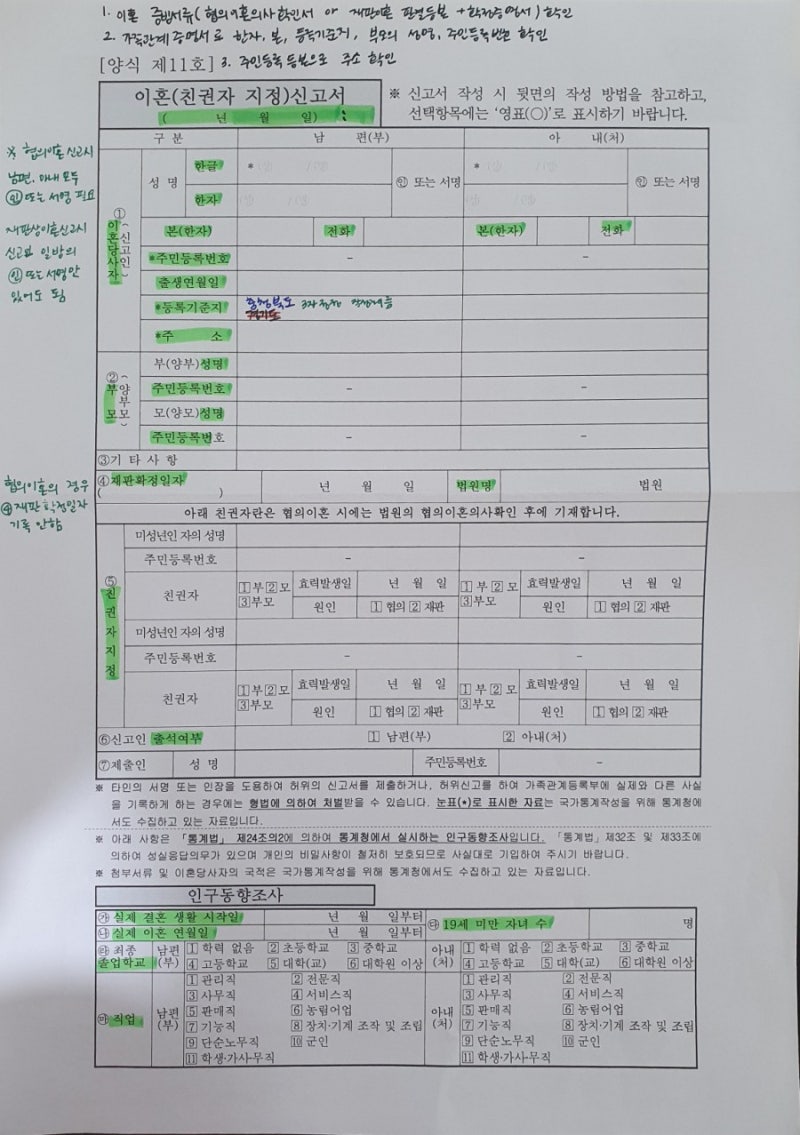 1. 이혼 증빙서류(협의이혼의사확인서 or 재판이혼 판결등본 + 확정증명서) 확인
2. 가족관계증명서로 한자, 본, 등록기준지, 부모의 성명, 주민등록번호 확인
[양식 제11호] 3. 주민등록등본으로 주소 확인
이혼(친권자 지정)신고서
( 년 월 일)
※ 신고서 작성 시 뒷면의 작성 방법을 참고하고,
선택항목에는 '영표(○)'로 표시하기 바랍니다.
구 분 남 편(부) 아 내(처)
※ 협의이혼신고시
남편, 아내 모두
㊞또는 서명 필요
재판상이혼신고시
신고인 일방의
㊞또는 서명만
있어도 됨
① 이혼당사자(신고인)
성 명 한글 * ㊞ 또는 서명 * ㊞ 또는 서명
한자
본(한자) 전화 본(한자) 전화
*주민등록번호 - -
출생연월일
*등록기준지 충청북도
경기도
*주 소
② 부모(양부모)
부(양부)성명
주민등록번호 - -
모(양모)성명
주민등록번호 - -
③기 타 사 항
협의이혼의 경우
④ 재판확정일자
기록 안함
④재판확정일자
( ) 년 월 일 법원명 법원
아래 친권자란은 협의이혼 시에는 법원의 협의이혼의사확인 후에 기재합니다.
⑤친권자지정
미성년인 자의 성명
주민등록번호 - -
친권자 1부2모 3부모 효력발생일 년 월 일 1부2모 3부모 효력발생일 년 월 일
원인 1협의 2재판 원인 1협의 2재판
미성년인 자의 성명
주민등록번호 - -
친권자 1부2모 3부모 효력발생일 년 월 일 1부2모 3부모 효력발생일 년 월 일
원인 1협의 2재판 원인 1협의 2재판
⑥신고인 출석여부 1 남편(부) 2 아내(처)
⑦제출인 성 명 주민등록번호 -
※ 타인의 서명 또는 인장을 도용하여 허위의 신고서를 제출하거나, 허위신고를 하여 가족관계등록부에 실제와 다른 사실
을 기록하게 하는 경우에는 형법에 의하여 처벌받을 수 있습니다. 눈표(*)로 표시한 자료는 국가통계작성을 위해 통계청에
서도 수집하고 있는 자료입니다.
※ 아래 사항은 「통계법」 제24조의2에 의하여 통계청에서 실시하는 인구동향조사입니다. 「통계법」제32조 및 제33조에
의하여 성실응답의무가 있으며 개인의 비밀사항이 철저히 보호되므로 사실대로 기입하여 주시기 바랍니다.
※ 첨부서류 및 이혼당사자의 국적은 국가통계작성을 위해 통계청에서도 수집하고 있는 자료입니다.
인구동향조사
㉮ 실제 결혼 생활 시작일 년 월 일부터 ㉰ 19세 미만 자녀 수 명
㉯ 실제 이혼 연월일 년 월 일부터
㉱ 최종 졸업학교
남편(부) 1 학력 없음 2 초등학교 3 중학교 아내(처) 1 학력 없음 2 초등학교 3 중학교
4 고등학교 5 대학(교) 6 대학원 이상 4 고등학교 5 대학(교) 6 대학원 이상
㉲ 직업
남편(부) 1 관리직 2 전문직 아내(처) 1 관리직 2 전문직
3 사무직 4 서비스직 3 사무직 4 서비스직
5 판매직 6 농림어업 5 판매직 6 농림어업
7 기능직 8 장치·기계 조작 및 조립 7 기능직 8 장치·기계 조작 및 조립
9 단순노무직 10 군인 9 단순노무직 10 군인
11 학생·가사·무직 11 학생·가사·무직